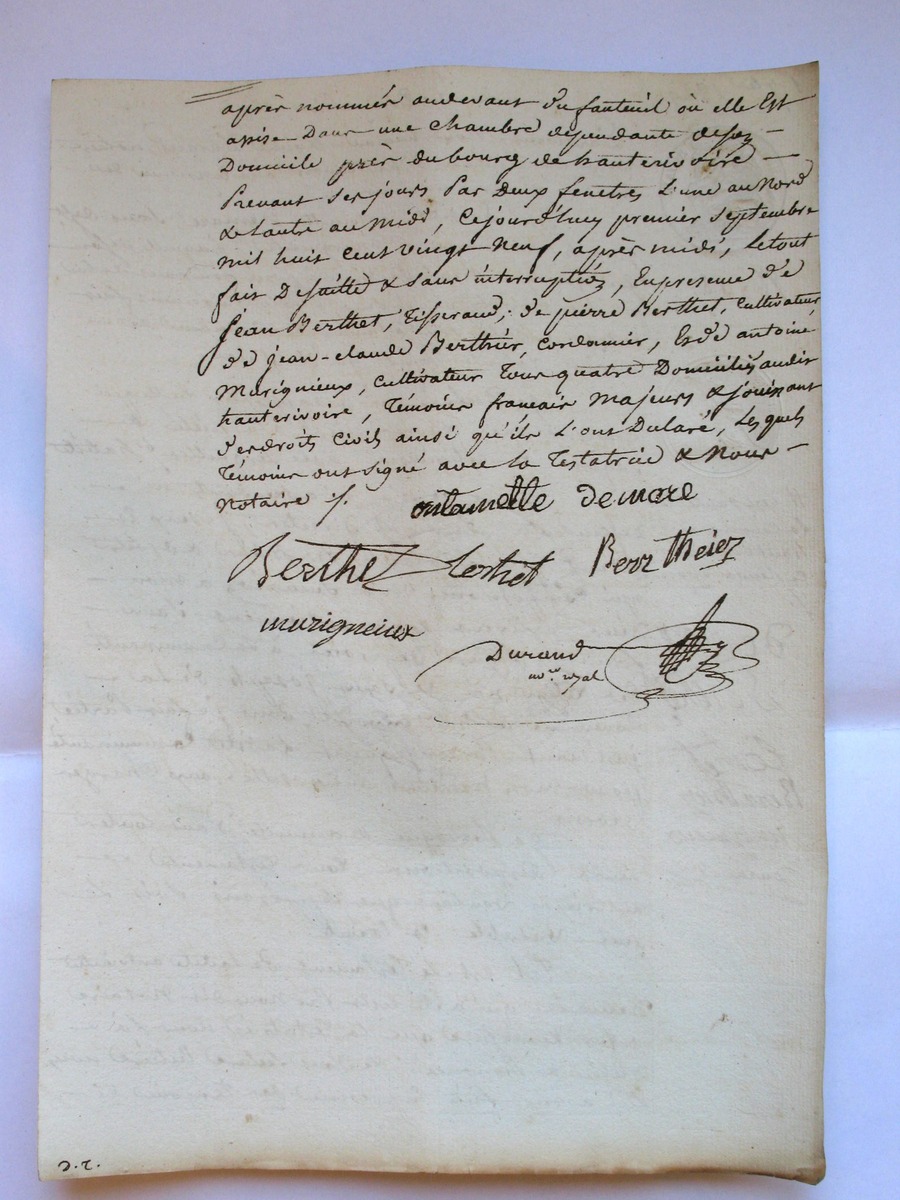 après nommés audevant du fauteuil où elle Est
assise Dans une chambre dépendante de son
Domicile près du bourg de hauterivoire
Prenant ses jours Par deux fenêtres L'une au Nord
& l'autre au Midi, Cejourd'huy premier Septembre
mil huit cent vingt Neuf, après midi, Le tout
fait De suitte & sans interruption, En presence de
Jean Berthet, Tisserand, de pierre Berthet, Cultivateur,
de jean-claude Berthier, Cordonnier, Et de antoine
Murigneux, Cultivateur Tous quatre Domiciliés audit
hauterivoire, Témoins francais Majeurs & jouissant
des droits Civils ainsi qu'ils L'ont Déclaré, Lesquels
Témoins ont signé avec la Testatrice & Nous
Notaire ./.
demare
Berthet Bertet Berrtheier
murigneiux
Durand
no.re royal